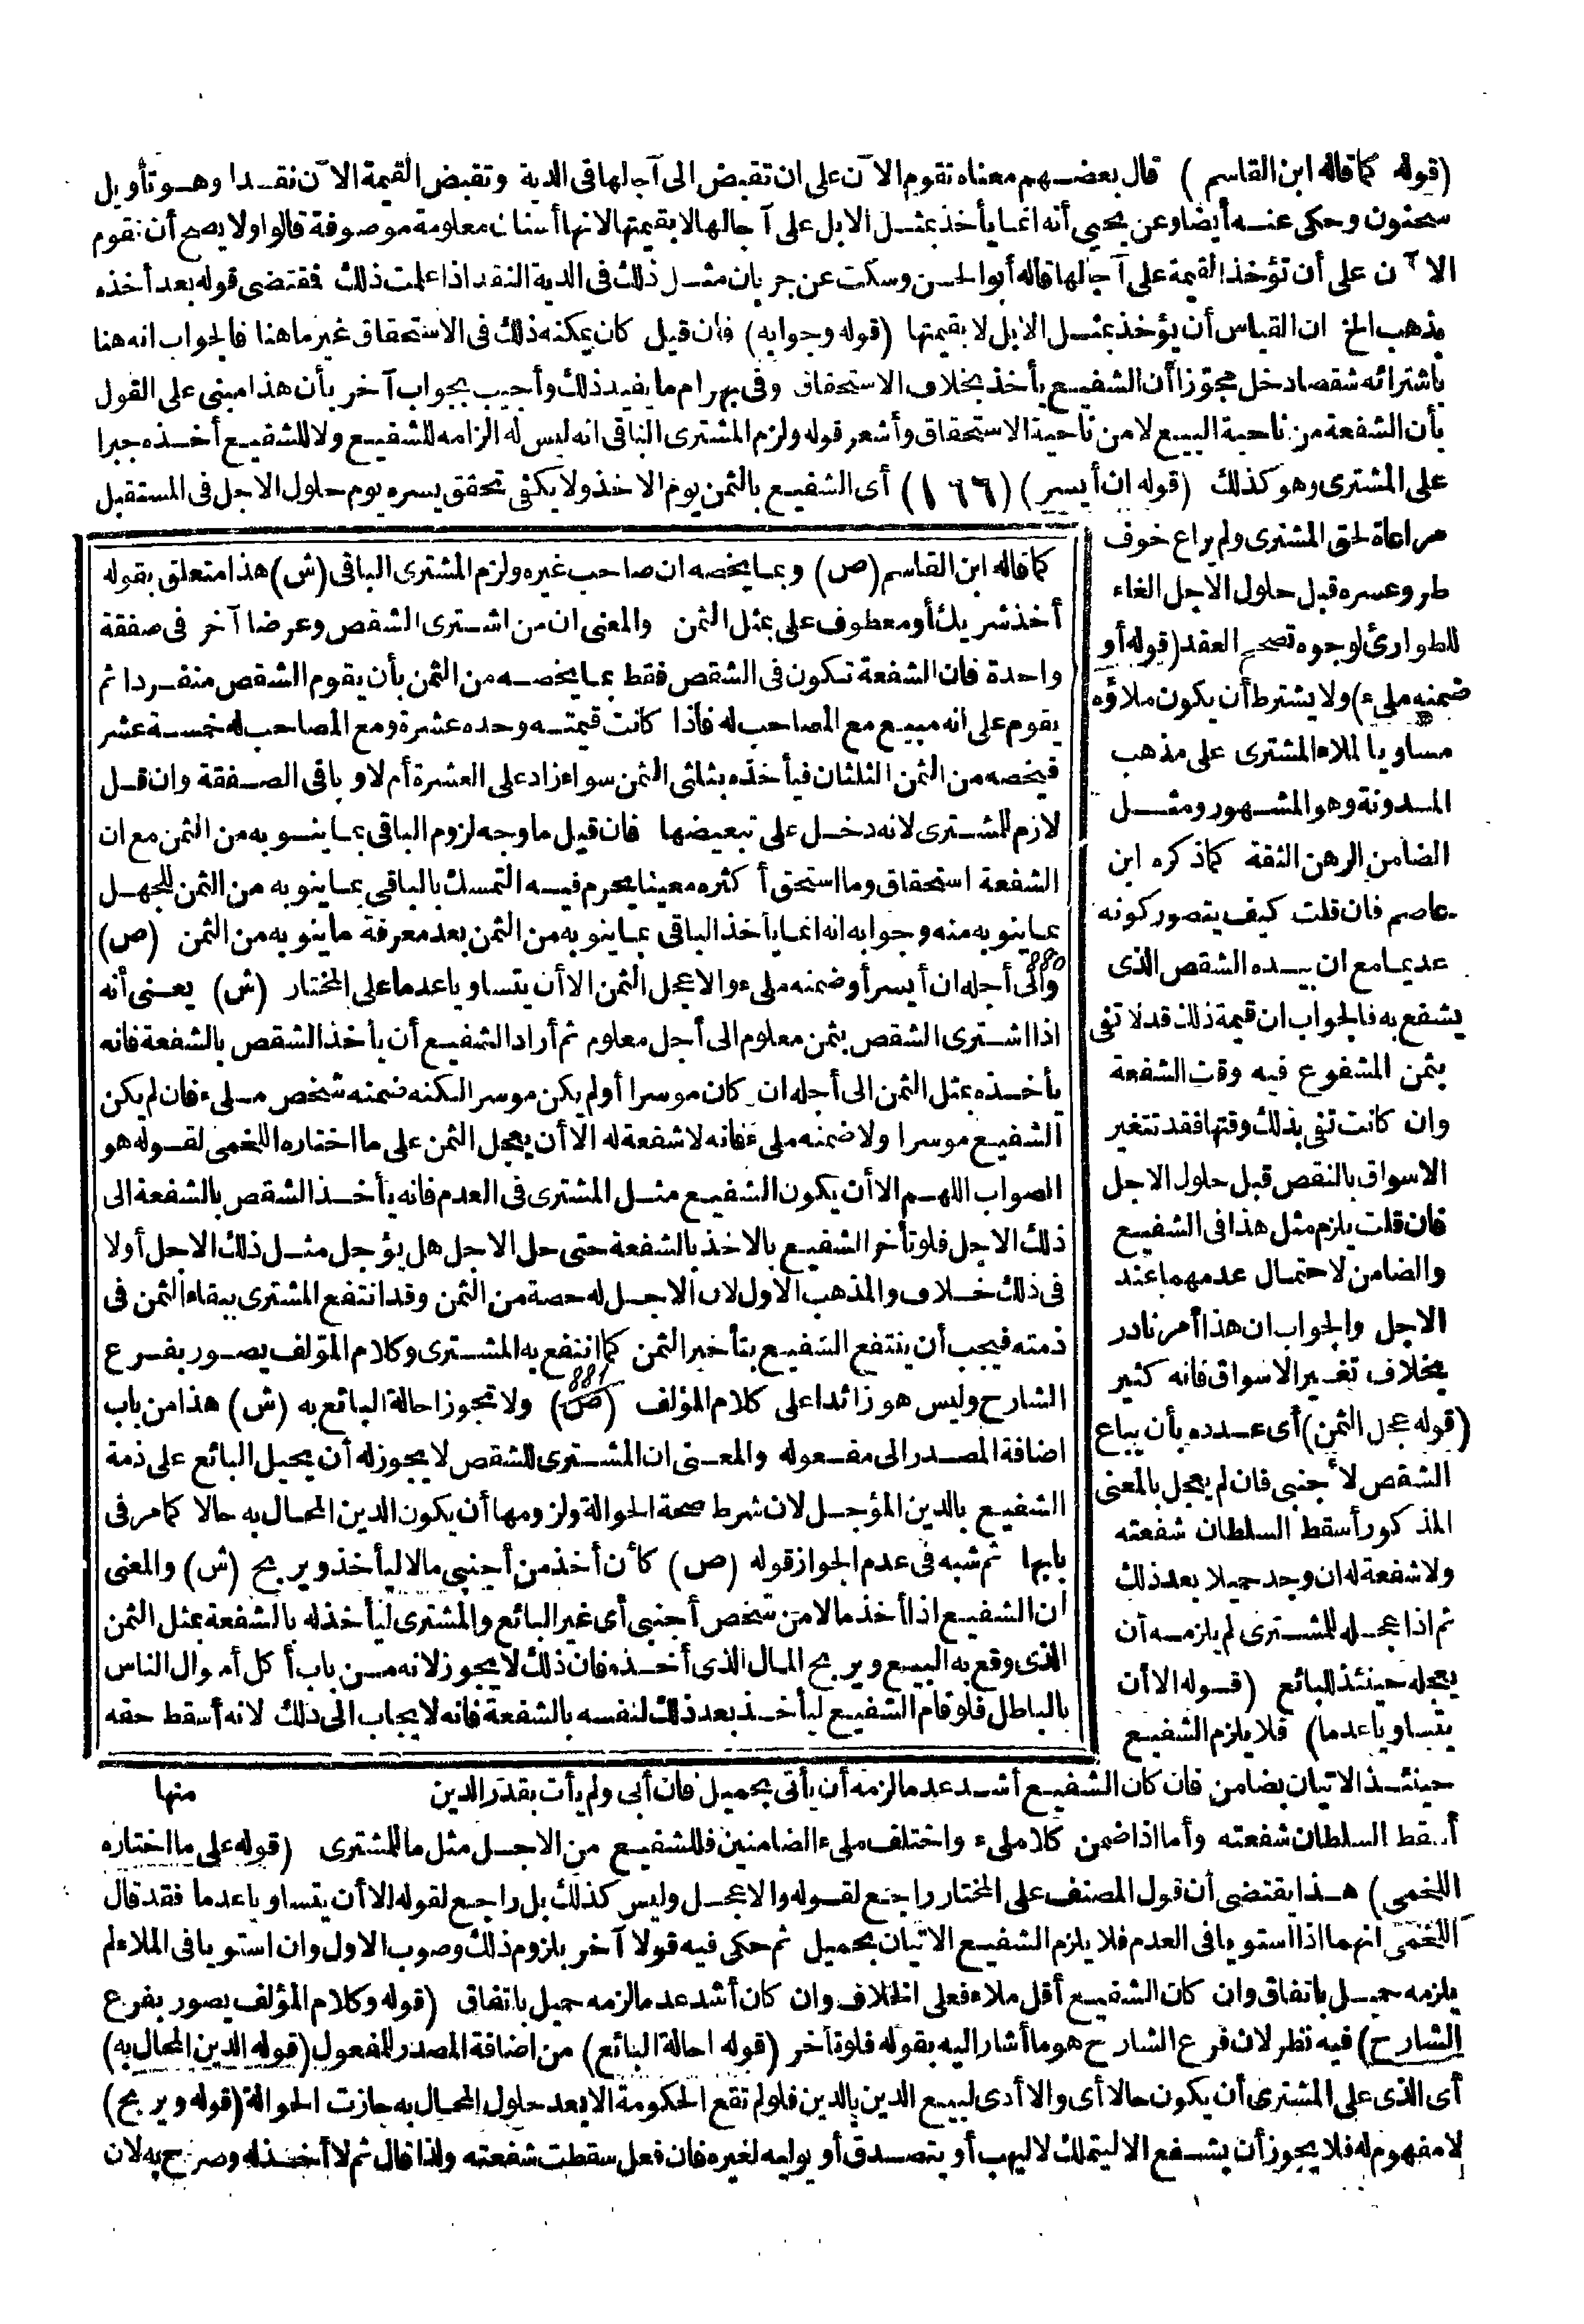 (قوله كما قاله ابن القاسم) قال بعضهم معناه تقوم الآن على ان تقبض الى آجالها فى الدية وتقبض القيمة الآن نقدا وهو تأويل
سحنون وحكى عنه أيضا وعن يحيى أنه انما يأخذ بمثل الابل على آجالها لا بقيمتها لانها أسنان معلومة موصوفة قالوا ولا يصح أن تقوم
الآن على أن تؤخذ القيمة على آجالها قاله أبو الحسن وسكت عن جريان مثل ذلك فى الدية النقد اذا علمت ذلك فقتضى قوله بعد أخذه
مذهب الخ ان القياس أن يؤخذ بمثل الابل لا بقيمتها (قوله وجوابه) فان قيل كان يمكنه ذلك فى الاستحقاق غير ما هنا فالجواب انه هنا
باشترائه شقصا دخل مجوّزا أن الشفيع يأخذ بخلاف الاستحقاق وفى بهرام ما يفيد ذلك وأجيب بجواب آخر بأن هذا مبنى على القول
بأن الشفعة من ناحية البيع لا من ناحية الاستحقاق وأشعر قوله ولزم المشترى الباقى انه ليس له الزامه للشفيع ولا للشفيع أخذه جبرا
على المشترى وهو كذلك (قوله ان أيسر) (١٦٦) أى الشفيع بالثمن يوم الاخذ ولا يكفى تحقق يسره يوم حلول الاجل فى المستقبل
مراعاة لحق المشترى ولم يراع خوف
طرو عسره قبل حلول الاجل الغاء
للطوارئ لوجوه تصحح العقد (قوله أو
ضمنه ملىء) ولا يشترط أن يكون ملاؤه
مساويا لملاء المشترى على مذهب
المدونة وهو المشهور ومثل
الضامن الرهن الثقة كما ذكره ابن
عاصم فان قلت كيف يتصور كونه
عديما مع ان بيده الشقص الذى
يشفع به فالجواب ان قيمة ذلك قد لا تفى
بثمن المشفوع فيه وقت الشفعة
وان كانت تفى بذلك وقتها فقد تتغير
الاسواق بالنقص قبل حلول الاجل
فان قلت يلزم مثل هذا فى الشفيع
والضامن لاحتمال عدمهما عند
الاجل والجواب ان هذا أمر نادر
بخلاف تغيير الاسواق فانه كثير
(قوله عجل الثمن) أى عدده بأن يباع
الشقص لأجنبى فان لم يعجل بالمعنى
المذكور أسقط السلطان شفعته
ولا شفعة له ان وجد حميلا بعد ذلك
ثم اذا عجله للمشترى لم يلزمه أن
يعجله حينئذ للبائع (قوله الا أن
يتساويا عدما) فلا يلزم الشفيع
كما قاله ابن القاسم (ص) وبما يخصه ان صاحب غيره ولزم المشترى الباقى (ش) هذا متعلق بقوله
أخذ شريك أو معطوف على بمثل الثمن والمعنى ان من اشترى الشقص وعرضا آخر فى صفقة
واحدة فان الشفعة تكون فى الشقص فقط بما يخصه من الثمن بأن يقوم الشقص منفردا ثم
يقوم على انه مبيع مع المصاحب له فاذا كانت قيمته وحده عشرة ومع المصاحب له خمسة عشر
فيخصه من الثمن الثلثان فيأخذه بثلثى الثمن سواء زاد على العشرة أم لا وباقى الصفقة وان قل
لازم للمشترى لانه دخل على تبعيضها فان قيل ما وجه لزوم الباقى بما ينوبه من الثمن مع ان
الشفعة استحقاق وما استحق أكثره معينا يحرم فيه التمسك بالباقى بما ينوبه من الثمن للجهل
بما ينوبه منه وجوابه انه انما يأخذ الباقى بما ينوبه من الثمن بعد معرفة ما ينوبه من الثمن (ص)
880
والى أجله ان أيسر أو ضمنه ملىء والا عجل الثمن الا أن يتساويا عدما على المختار (ش) يعنى أنه
اذا اشترى الشقص بثمن معلوم الى أجل معلوم ثم أراد الشفيع أن يأخذ الشقص بالشفعة فانه
يأخذه بمثل الثمن الى أجله ان كان موسرا أو لم يكن موسرا لكنه ضمنه شخص ملىء فان لم يكن
الشفيع موسرا ولا ضمنه ملىء فانه لا شفعة له الا أن يعجل الثمن على ما اختاره اللخمى لقوله هو
الصواب اللهم الا أن يكون الشفيع مثل المشترى فى العدم فانه يأخذ الشقص بالشفعة الى
ذلك الاجل فلو تأخر الشفيع بالاخذ بالشفعة حتى حل الاجل هل يؤجل مثل ذلك الاجل أولا
فى ذلك خلاف والمذهب الاول لان الاجل له حصة من الثمن وقد انتفع المشترى ببقاء الثمن فى
ذمته فيجب أن ينتفع الشفيع بتأخير الثمن كما انتفع به المشترى وكلام المؤلف يصور بفرع
881
الشارح وليس هو زائدا على كلام المؤلف (ص) ولا تجوز احالة البائع به (ش) هذا من باب
اضافة المصدر الى مفعوله والمعنى ان المشترى للشقص لا يجوز له أن يحيل البائع على ذمة
الشفيع بالدين المؤجل لان شرط صحة الحوالة ولزومها أن يكون الدين المحال به حالا كما مر فى
بابها ثم شبه فى عدم الجواز قوله (ص) كأن أخذ من أجنبى مالا ليأخذ ويربح (ش) والمعنى
ان الشفيع اذا أخذ مالا من شخص أجنبى أى غير البائع والمشترى ليأخذ له بالشفعة بمثل الثمن
الذى وقع به البيع ويربح المال الذى أخذه فان ذلك لا يجوز لانه من باب أكل أموال الناس
بالباطل فلو قام الشفيع ليأخذ بعد ذلك لنفسه بالشفعة فانه لا يجاب الى ذلك لانه أسقط حقه
منها
حينئذ الاتيان بضامن فان كان الشفيع أشد عدما لزمه أن يأتى بحميل فان أبى ولم يأت بقدر الدين
أسقط السلطان شفعته وأما اذا ضمن كلا ملىء واختلف ملىء الضامنين فللشفيع من الاجل مثل ما للمشترى (قوله على ما اختاره
اللخمى) هذا يقتضى أن قول المصنف على المختار راجع لقوله والا عجل وليس كذلك بل راجع لقوله الا أن يتساويا عدما فقد قال
اللخمى انهما اذا استويا فى العدم فلا يلزم الشفيع الاتيان بحميل ثم حكى فيه قولا آخر بلزوم ذلك وصوب الاول وان استويا فى الملاء لم
يلزمه حميل باتفاق وان كان الشفيع أقل ملاء فعلى الخلاف وان كان أشد عدما لزمه حميل باتفاق (قوله وكلام المؤلف يصور بفرع
الشارح) فيه نظر لان فرع الشارح هو ما أشار اليه بقوله فلو تأخر (قوله احالة البائع) من اضافة المصدر للمفعول (قوله الدين المحال به)
أى الذى على المشترى أن يكون حالا أى والا أدى لبيع الدين بالدين فلو لم تقع الحكومة الا بعد حلول المحال به جازت الحوالة (قوله ويربح)
لا مفهوم له فلا يجوز أن يشفع الا ليتملك لا ليهب أو يتصدق أو يوليه لغيره فان فعل سقطت شفعته ولذا قال ثم لا أخذ له وصرح به لان